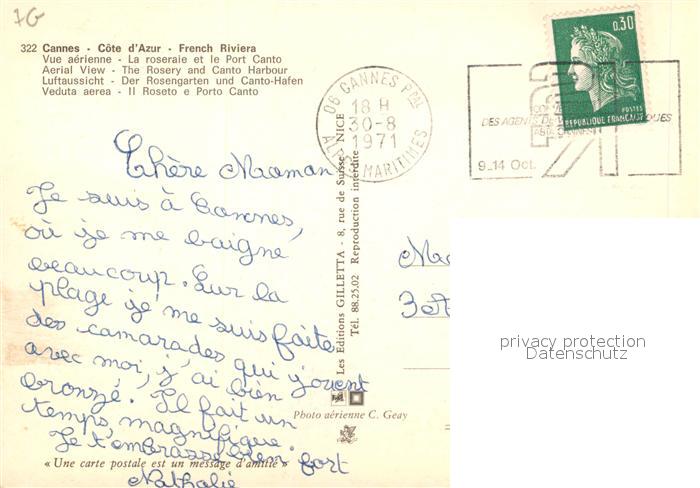 7G
322 Cannes - Côte d'Azur - French Riviera
Vue aérienne - La roseraie et le Port Canto
Aerial View - The Rosery and Canto Harbour
Luftaussicht - Der Rosengarten und Canto-Hafen
Veduta aerea - Il Roseto e Porto Canto
06 CANNES PPAL
18 H
30-8
1971
ALPES MARITIMES
0,30
POSTES
REPUBLIQUE FRANÇAISE
DES AGENTS DE
9_14 Oct.
Chère Maman
Je suis à Cannes,
où je me baigne
beaucoup. Sur la
plage je me suis faite
des camarades qui jouent
avec moi, j'ai bien
bronzé. Il fait un
temps magnifique.
Je t'embrasse bien fort
Nathalie
Les Editions GILLETTA - 8, rue de Suisse - NICE
Tél. 88.25.02 Reproduction interdite
Photo aérienne C. Geay
« Une carte postale est un message d'amitié »
privacy protection
Datenschutz